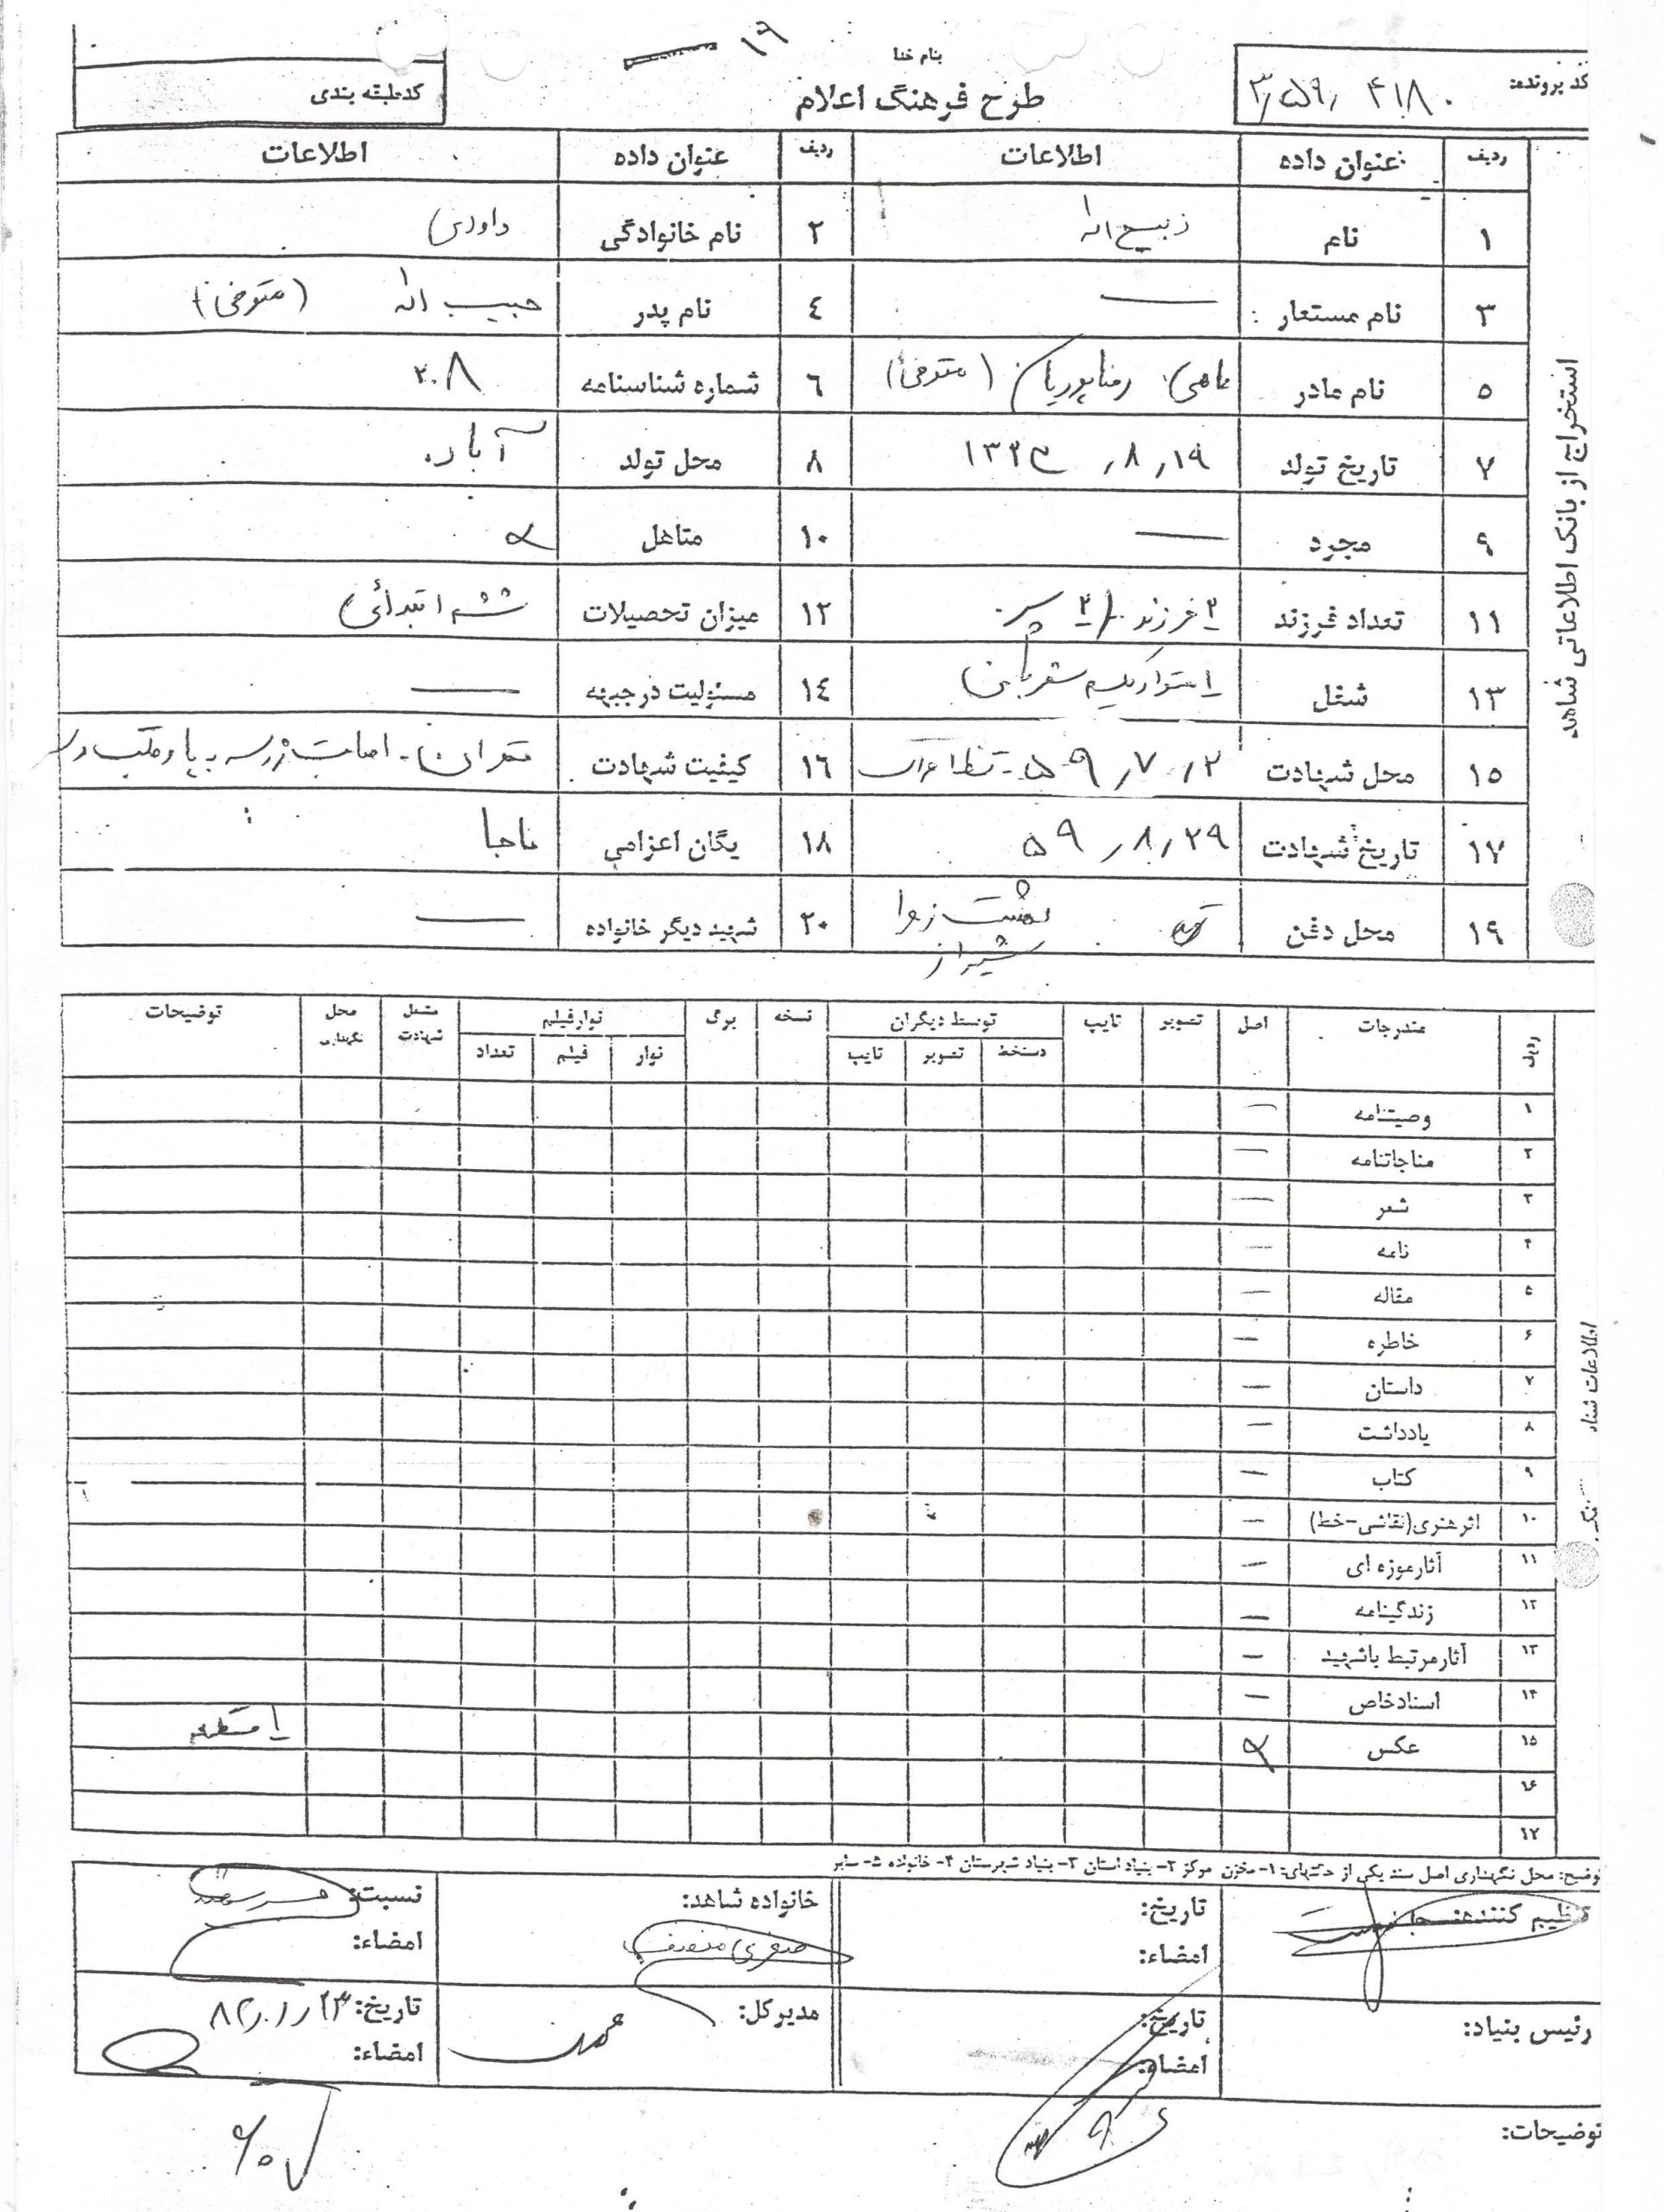 ۱۹
بنام خدا
طرح فرهنگ اعلام
کد پرونده: ۳٫۵۹٫ ۴۱۸۰
کدطبقه بندی
ردیف عنوان داده اطلاعات ردیف عنوان داده اطلاعات
۱ نام ذبیح اله ۲ نام خانوادگی داوری
۳ نام مستعار : — ٤ نام پدر حبیب اله (متوفی)
۵ نام مادر (متوفی) ٦ شماره شناسنامه ۲۰۸
۷ تاریخ تولد ۱۹٫۸٫ ۸ محل تولد آباده
۹ مجرد — ۱۰ متاهل
۱۱ تعداد فرزند ۲ فرزند ۲ پسر ۱۲ میزان تحصیلات ششم ابتدائی
۱۳ شغل استوار یکم ۱٤ مسئولیت درجبهه —
۱۵ محل شهادت ۲٫۷٫۵۹ - ۱٦ کیفیت شهادت
۱۷ تاریخ شهادت ۲۹٫۸٫۵۹ ۱۸ یگان اعزامی ناجا
۱۹ محل دفن بهشت زهرا ۲۰ شهید دیگر خانواده —
شیراز
استخراج از بانک اطلاعاتی شاهد
ردیف مندرجات اصل تصویر تایپ توسط دیگران نسخه برگ نوارفیلم محل توضیحات
دستخط تصویر تایپ نوار فیلم تعداد شهادت نگهداری
۱ وصیتنامه —
۲ مناجاتنامه —
۳ شعر —
۴ نامه —
۵ مقاله —
۶ خاطره —
۷ داستان —
۸ یادداشت —
۹ کتاب —
۱۰ اثرهنری(نقاشی-خط) —
۱۱ آثارموزه ای —
۱۲ زندگینامه —
۱۳ آثارمرتبط باشهید —
۱۴ اسنادخاص —
۱۵ عکس ۱ قطعه
۱۶
۱۷
توضیح: محل نگهداری اصل سند یکی از ۱- مخزن مرکز ۲- بنیاد استان ۳- بنیاد شهرستان ۴- خانواده ۵- سایر
تنظیم کننده: تاریخ: خانواده شاهد: نسبت: همسر
امضاء: امضاء:
رئیس بنیاد: تاریخ: مدیرکل: تاریخ:
امضاء: امضاء:
توضیحات: